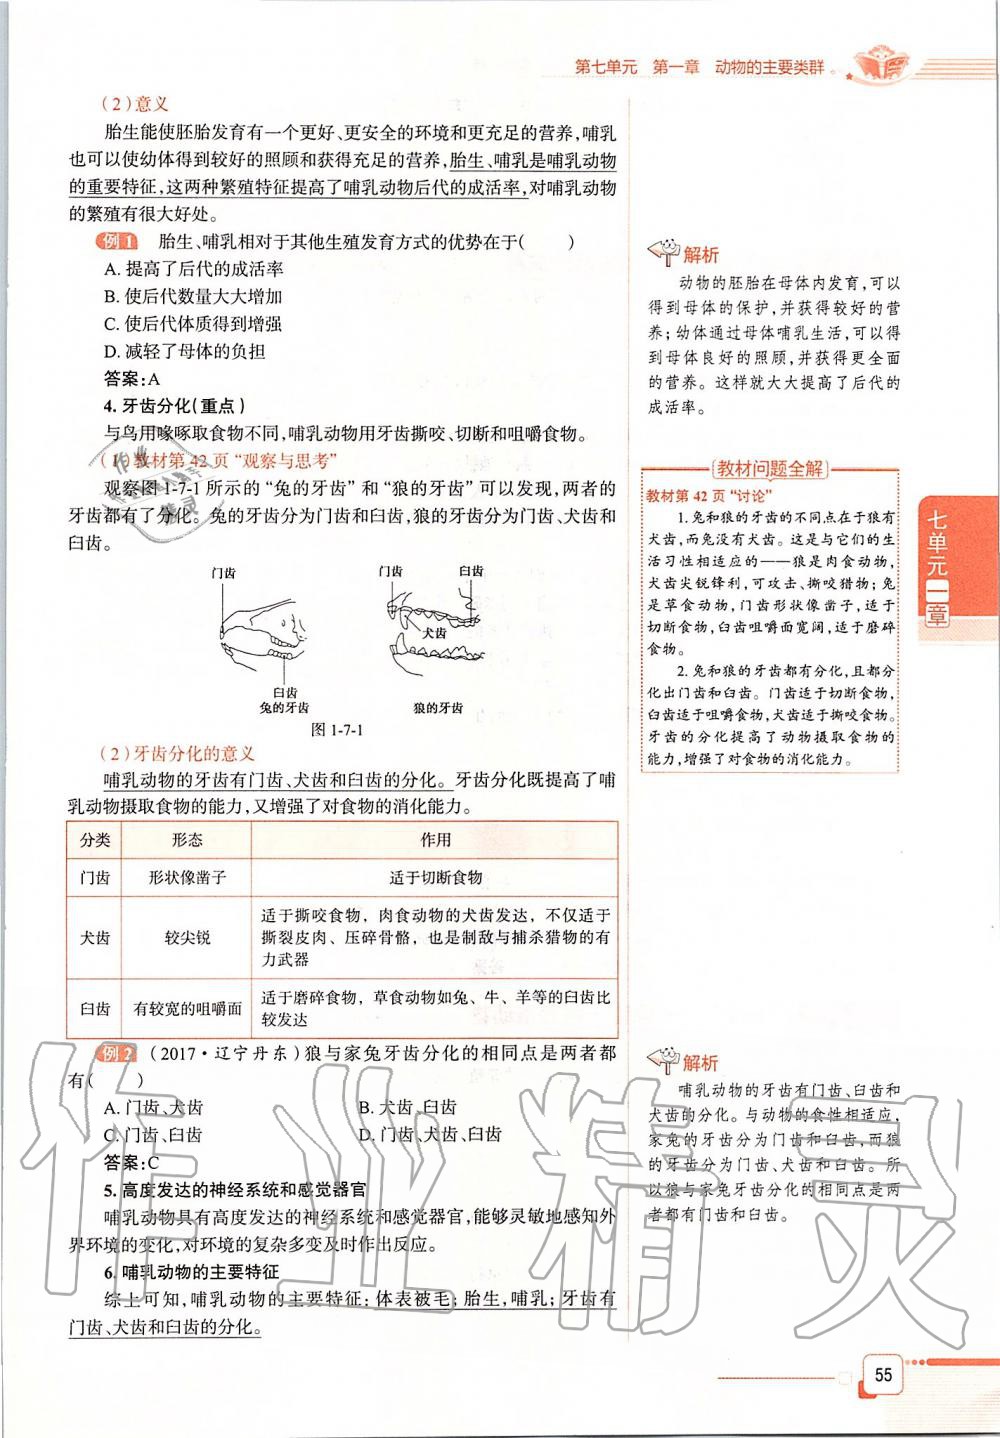 第七单元 第一章 动物的主要类群
(2)意义
胎生能使胚胎发育有一个更好、更安全的环境和更充足的营养,哺乳
也可以使幼体得到较好的照顾和获得充足的营养,胎生、哺乳是哺乳动物
的重要特征,这两种繁殖特征提高了哺乳动物后代的成活率,对哺乳动物
的繁殖有很大好处。
例1 胎生、哺乳相对于其他生殖发育方式的优势在于( )
A. 提高了后代的成活率
B. 使后代数量大大增加
C. 使后代体质得到增强
D. 减轻了母体的负担
答案:A
4. 牙齿分化(重点)
与鸟用喙啄取食物不同,哺乳动物用牙齿撕咬、切断和咀嚼食物。
(1)教材第42页“观察与思考”
观察图1-7-1所示的“兔的牙齿”和“狼的牙齿”可以发现,两者的
牙齿都有了分化。兔的牙齿分为门齿和臼齿,狼的牙齿分为门齿、犬齿和
臼齿。
门齿
臼齿
兔的牙齿
门齿 臼齿
犬齿
狼的牙齿
图1-7-1
(2)牙齿分化的意义
哺乳动物的牙齿有门齿、犬齿和臼齿的分化。牙齿分化既提高了哺
乳动物摄取食物的能力,又增强了对食物的消化能力。
分类 形态 作用
门齿 形状像凿子 适于切断食物
犬齿 较尖锐 适于撕咬食物,肉食动物的犬齿发达,不仅适于
撕裂皮肉、压碎骨骼,也是制敌与捕杀猎物的有
力武器
臼齿 有较宽的咀嚼面 适于磨碎食物,草食动物如兔、牛、羊等的臼齿比
较发达
例2 (2017·辽宁丹东)狼与家兔牙齿分化的相同点是两者都
有( )
A. 门齿、犬齿 B. 犬齿、臼齿
C. 门齿、臼齿 D. 门齿、犬齿、臼齿
答案:C
5. 高度发达的神经系统和感觉器官
哺乳动物具有高度发达的神经系统和感觉器官,能够灵敏地感知外
界环境的变化,对环境的复杂多变及时作出反应。
6. 哺乳动物的主要特征
综上可知,哺乳动物的主要特征:体表被毛;胎生,哺乳;牙齿有
门齿、犬齿和臼齿的分化。
解析
动物的胚胎在母体内发育,可以
得到母体的保护,并获得较好的营
养;幼体通过母体哺乳生活,可以得
到母体良好的照顾,并获得更全面
的营养。这样就大大提高了后代的
成活率。
教材问题全解
教材第42页“讨论”
1. 兔和狼的牙齿的不同点在于狼有
犬齿,而兔没有犬齿。这是与它们的生
活习性相适应的——狼是肉食动物,
犬齿尖锐锋利,可攻击、撕咬猎物;兔
是草食动物,门齿形状像凿子,适于
切断食物,臼齿咀嚼面宽阔,适于磨碎
食物。
2. 兔和狼的牙齿都有分化,且都分
化出门齿和臼齿。门齿适于切断食物,
臼齿适于咀嚼食物,犬齿适于撕咬食物。
牙齿的分化提高了动物摄取食物的
能力,增强了对食物的消化能力。
解析
哺乳动物的牙齿有门齿、臼齿和
犬齿的分化。与动物的食性相适应,
家兔的牙齿分为门齿和臼齿,而狼
的牙齿分为门齿、犬齿和臼齿。所
以狼与家兔牙齿分化的相同点是两
者都有门齿和臼齿。
七单元一章
55
作业精灵
作业
精灵